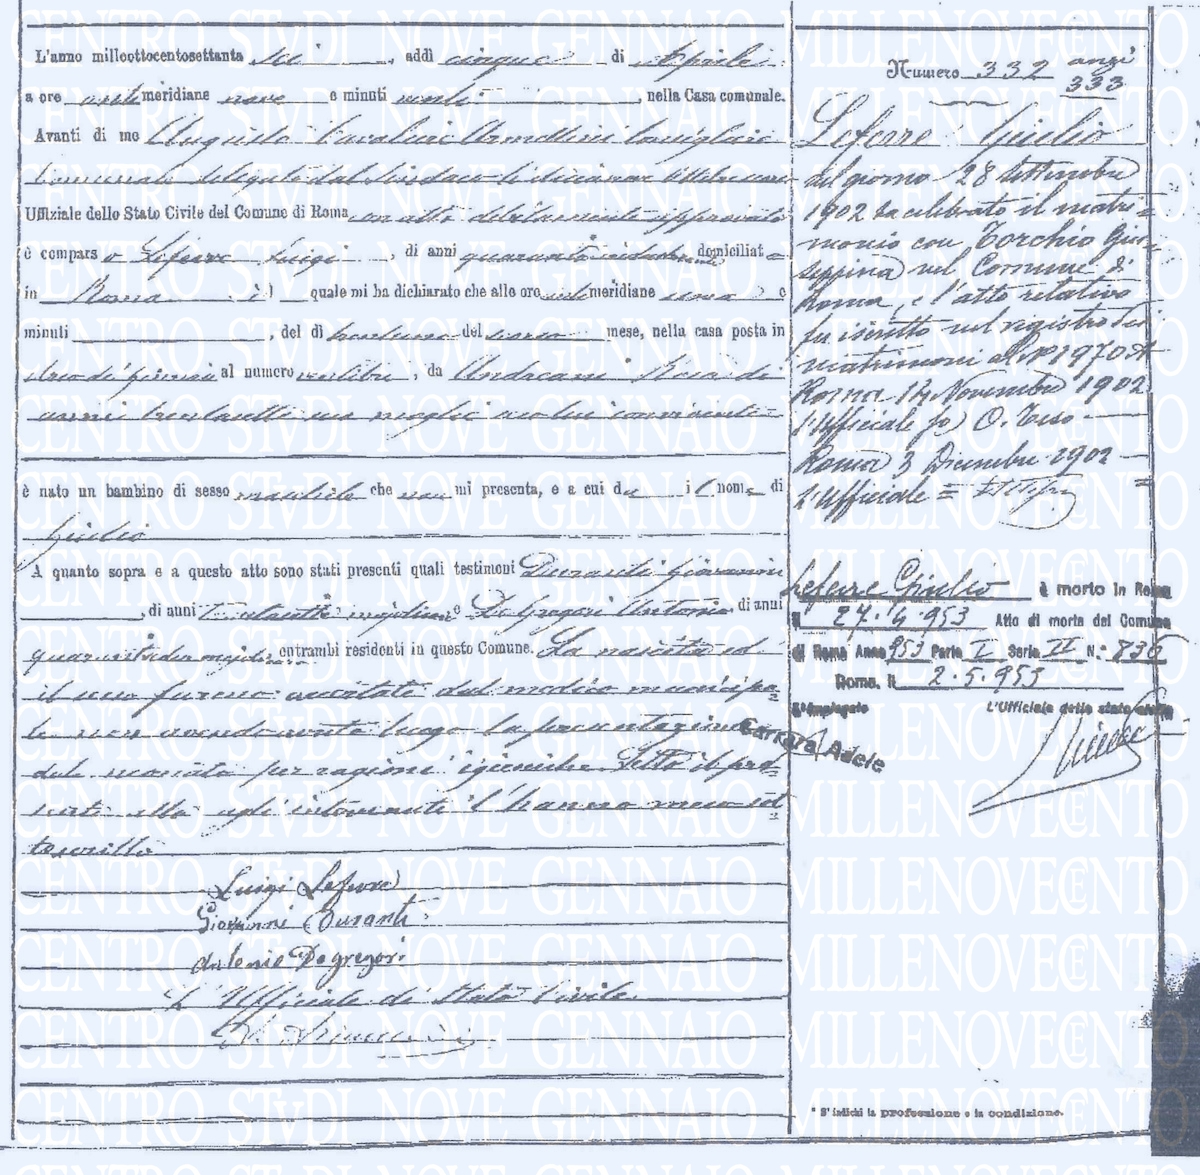 L'anno milleottocentosettanta sei, addì cinque di Aprile
a ore anti meridiane nove e minuti venti, nella Casa comunale.
Avanti di me Augusto Cavalieri Armellini Consigliere
Comunale delegato dal Sindaco li diciannove Ottobre
Uffiziale dello Stato Civile del Comune di Roma con atto debitamente approvato
è compars o Lefevre Luigi, di anni quaranta domiciliat o
in Roma i l quale mi ha dichiarato che alle ore meridiane una e
minuti, del dì trentuno del marzo mese, nella casa posta in
al numero, da Andreani Rosa di
anni trentasette sua moglie seco lui convivente
è nato un bambino di sesso maschile che non mi presenta, e a cui dà i l nome di
Giulio
A quanto sopra e a questo atto sono stati presenti quali testimoni Duranti Giovanni
, di anni e De Gregori Antonio, di anni
entrambi residenti in questo Comune. La nascita ed
il sesso furono accertati dal medico municipa=
le non avendo avuto luogo la presentazione
del neonato per ragioni igieniche. Letto il pre=
sente atto agli intervenuti l'hanno meco
Luigi Lefevre
Giovanni Duranti
Antonio Degregori
L'Ufficiale di Stato Civile
Numero 332 anzi
333
Lefevre Giulio
nel giorno 28 Settembre
1902 ha celebrato il matri=
monio con Torchio Giu=
seppina nel Comune di
Roma, e l'atto relativo
fu iscritto nel registro dei
matrimoni al N° 1970
Roma 14 Novembre 1902
l'Ufficiale fo) O. Tuso
Roma 3 Dicembre 1902
L'Ufficiale =
Lefevre Giulio è morto in Roma
il 27.4.953 Atto di morte del Comune
di Roma Anno 953 Parte I Serie II N.° 836
Roma, li 2.5.953
L'Impiegato L'Ufficiale dello stato civile
Carrara Adele
* S'indichi la professione o la condizione.
CENTRO STVDI NOVE GENNAIO MILLENOVECENTO